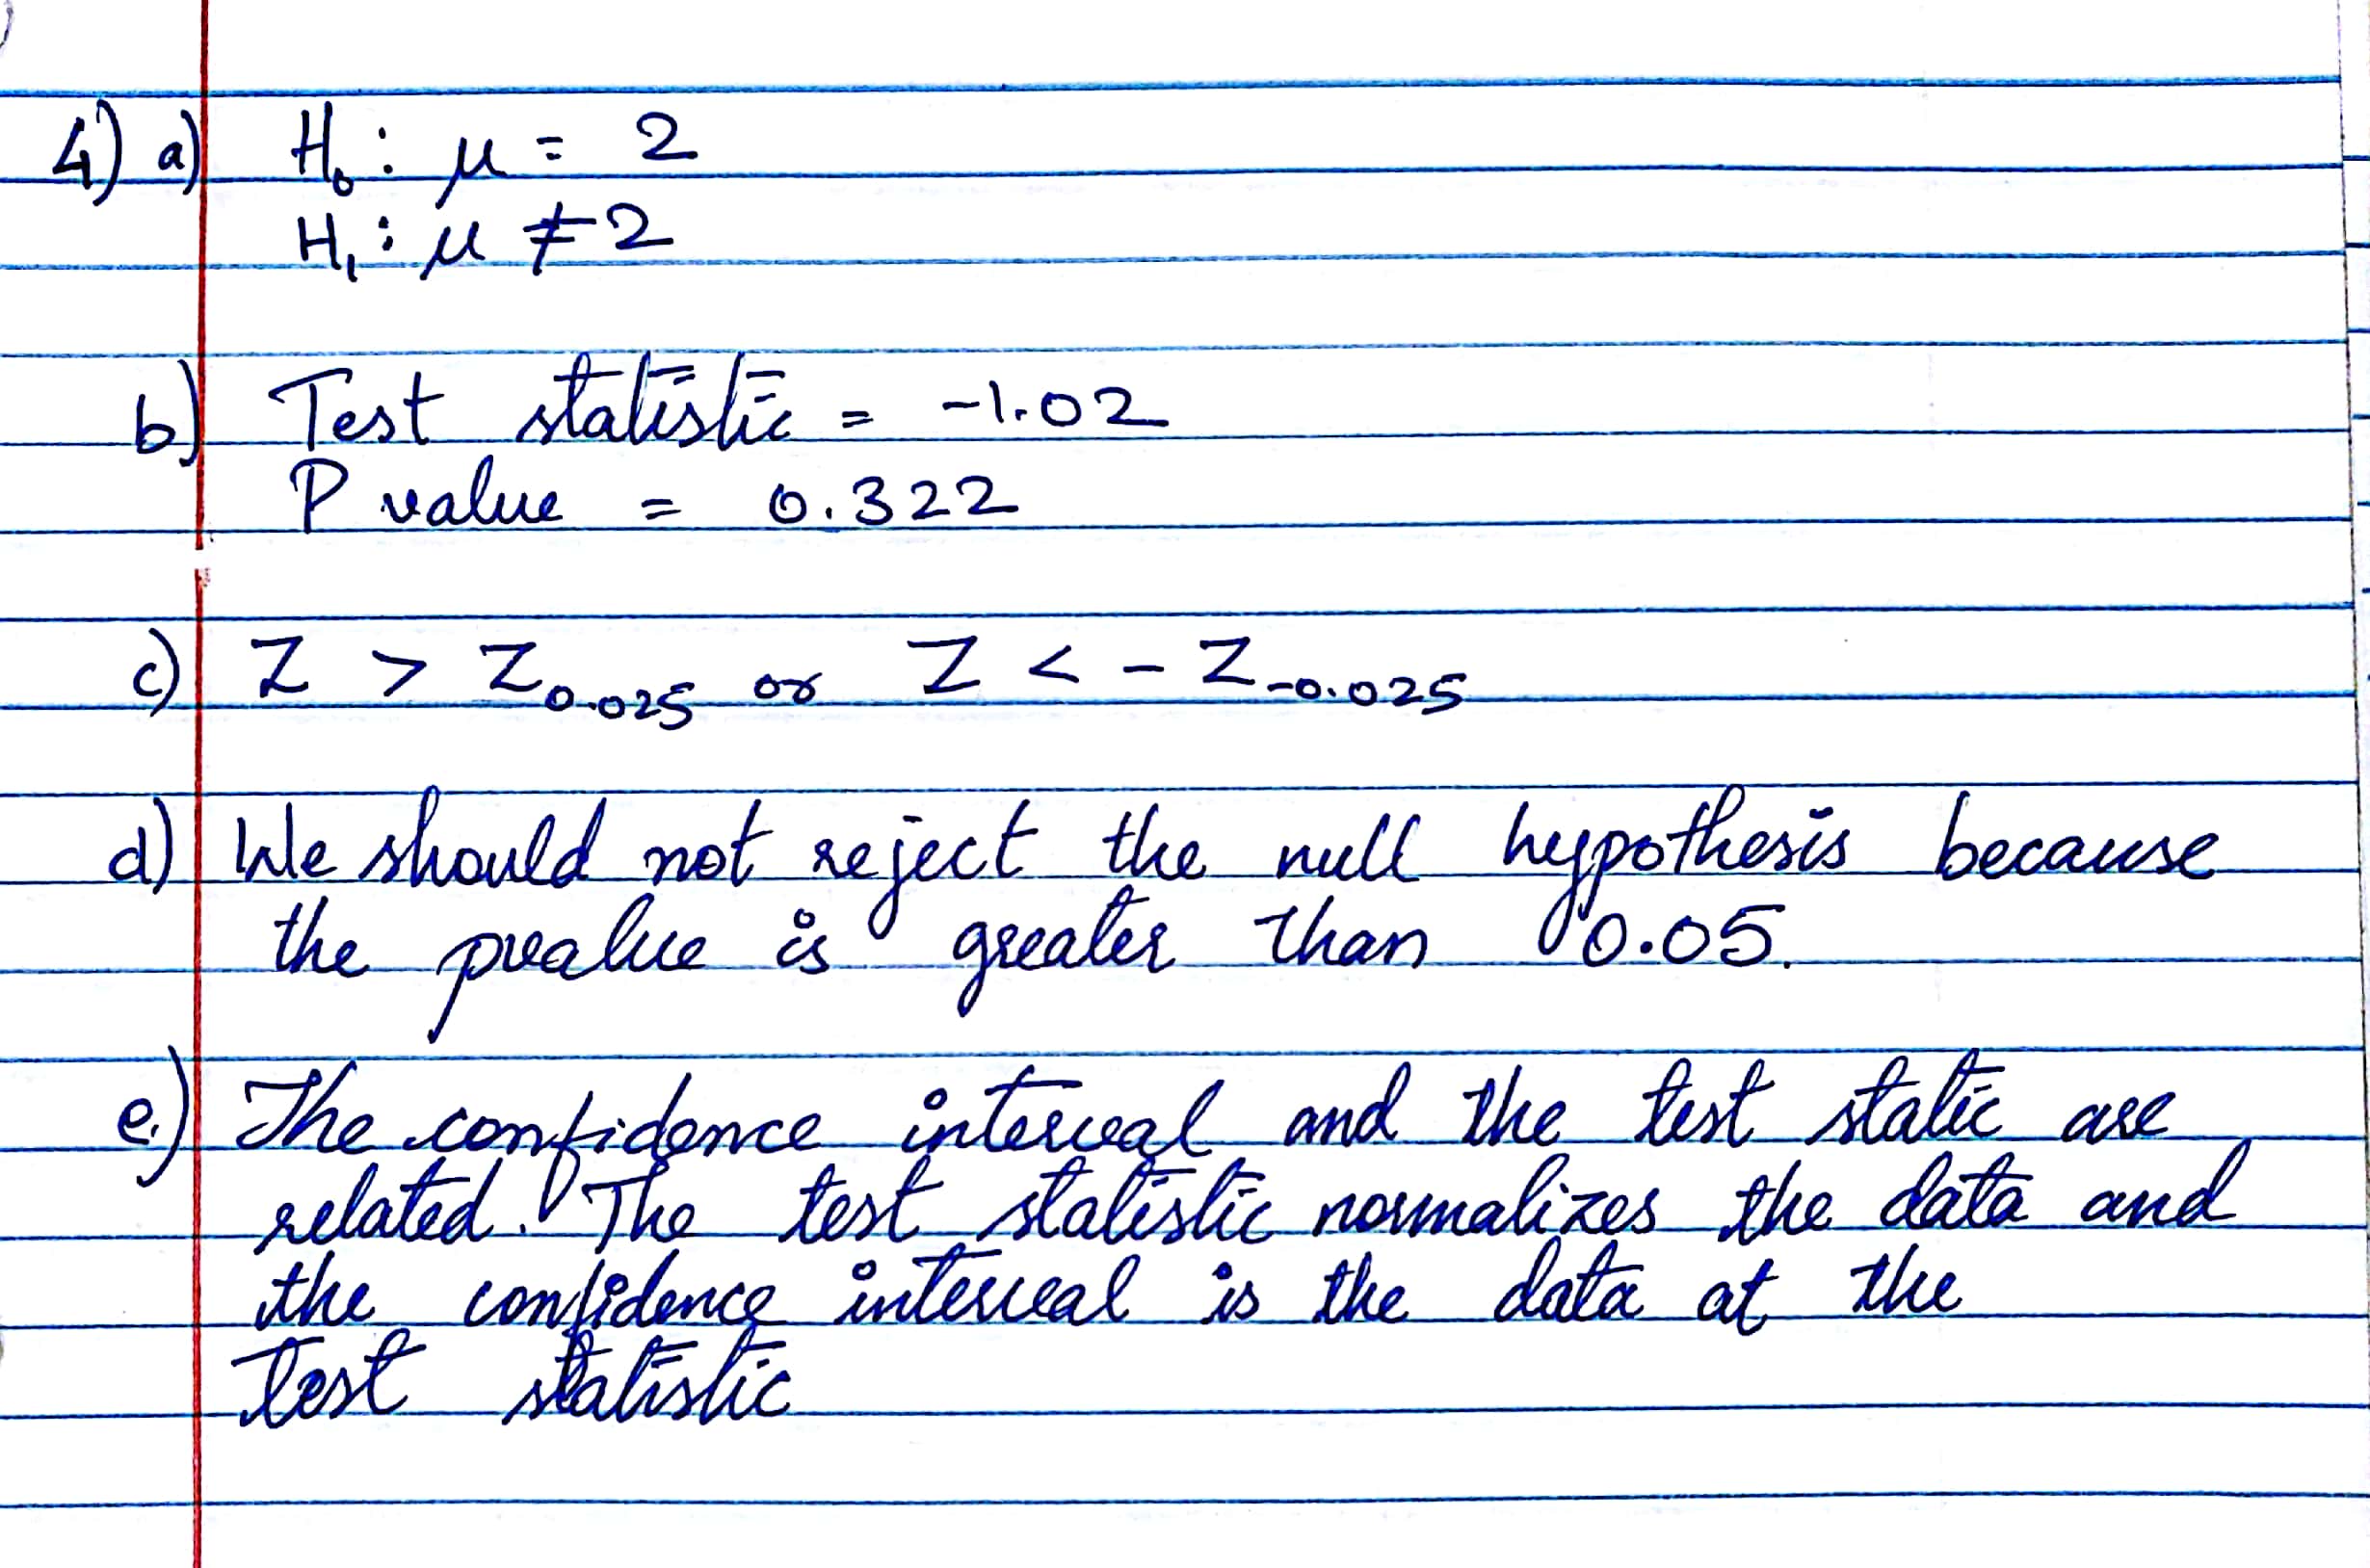 4) a) H₀ : μ = 2
H₁ : μ ≠ 2
b) Test statistic = -1.02
P value = 0.322
c) Z > Z₀.₀₂₅ or Z < - Z₋₀.₀₂₅
d) We should not reject the null hypothesis because
the pvalue is greater than 0.05.
e.) The confidence interval and the test static are
related. The test statistic normalizes the data and
the confidence interval is the data at the
Test statistic